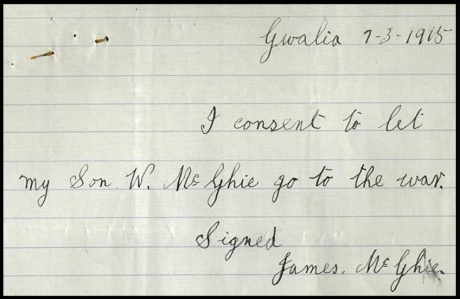 Gwalia 7-3-1915
I consent to let
my Son W. McGhie go to the war.
Signed
James. McGhie.